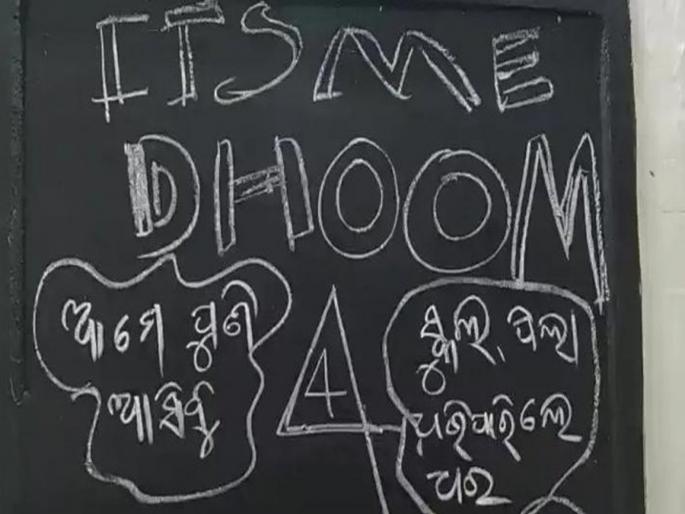 ITS ME
DHOOM
4
ଆମେ ପୁଣି
ଆସିବୁ
ସ୍କୁଲ, ପିଲା
ଧରିପାରିଲେ
ଧର